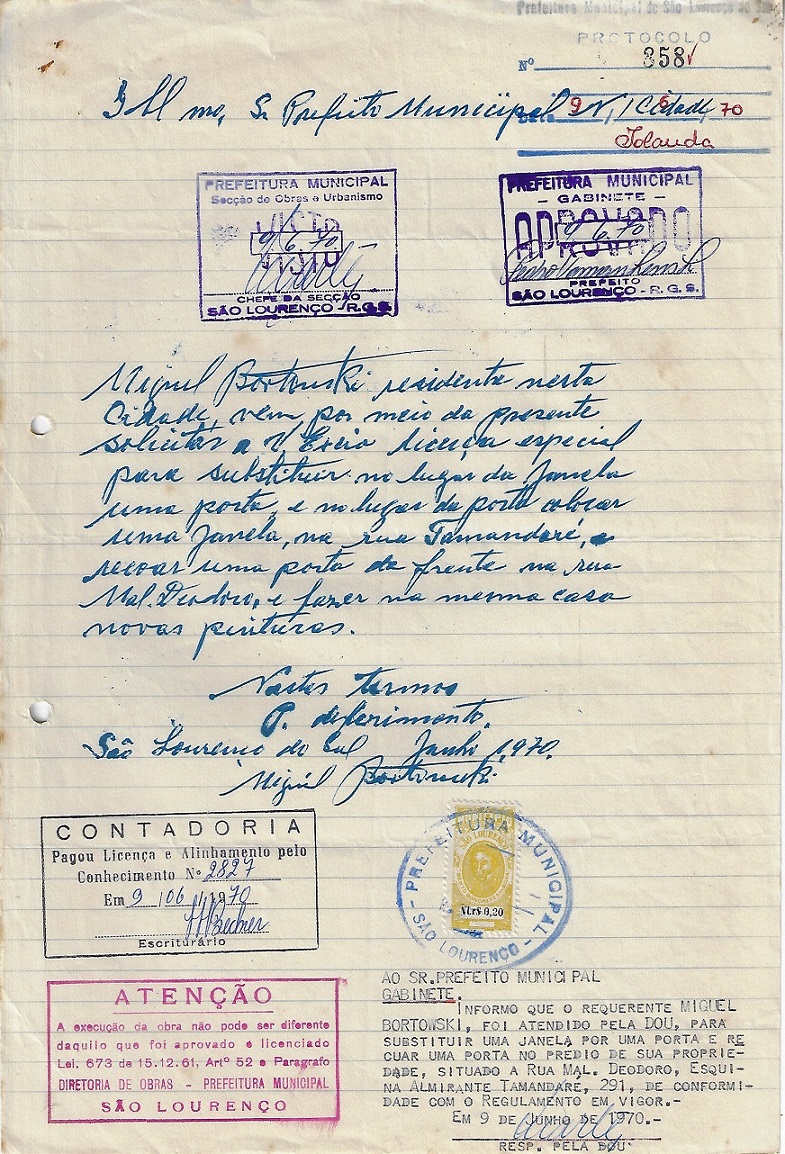 Prefeitura Municipal de São Lourenço do Sul
PROTOCOLO
Nº 358
Illmo, Sr Prefeito Municipal N, / Cidade
9 6 70
Iolanda
PREFEITURA MUNICIPAL
Secção de Obras e Urbanismo
VISTO
9/6/70
CHEFE DA SECÇÃO
SÃO LOURENÇO - R.G.S.
PREFEITURA MUNICIPAL
— GABINETE —
APROVADO
9/6.70
PREFEITO
SÃO LOURENÇO - R.G.S.
Miguel Bortowski residente nesta
Cidade, vem por meio da presente
solicitar a V Excia licença especial
para substituir no lugar da Janela
uma porta, e no lugar da porta colocar
uma Janela, na rua Tamandaré, e
recoar uma porta da frente na rua
Mal. Deodoro, e fazer na mesma casa
novas pinturas.
Nestes termos
P. deferimento.
São Lourenço do Sul Junho 1,970.
Miguel Bortowski
CONTADORIA
Pagou Licença e Alinhamento pelo
Conhecimento Nº 2827
Em 9 / 06 / 1970
Escriturário
PREFEITURA MUNICIPAL
- SÃO LOURENÇO -
NCr$ 0,20
ATENÇÃO
A execução da obra não pode ser diferente
daquilo que foi aprovado e licenciado
Lei. 673 de 15.12.61, Artº 52 e Paragrafo
DIRETORIA DE OBRAS - PREFEITURA MUNICIPAL
SÃO LOURENÇO
AO SR.PREFEITO MUNICIPAL
GABINETE.
INFORMO QUE O REQUERENTE MIGUEL
BORTOWSKI, FOI ATENDIDO PELA DOU, PARA
SUBSTITUIR UMA JANELA POR UMA PORTA E RE
CUAR UMA PORTA NO PREDIO DE SUA PROPRIE-
DADE, SITUADO A RUA MAL. DEODORO, ESQUI-
NA ALMIRANTE TAMANDARE, 291, DE CONFORMI-
DADE COM O REGULAMENTO EM VIGOR.-
EM 9 DE JUNHO DE 1970.-
RESP. PELA DOU